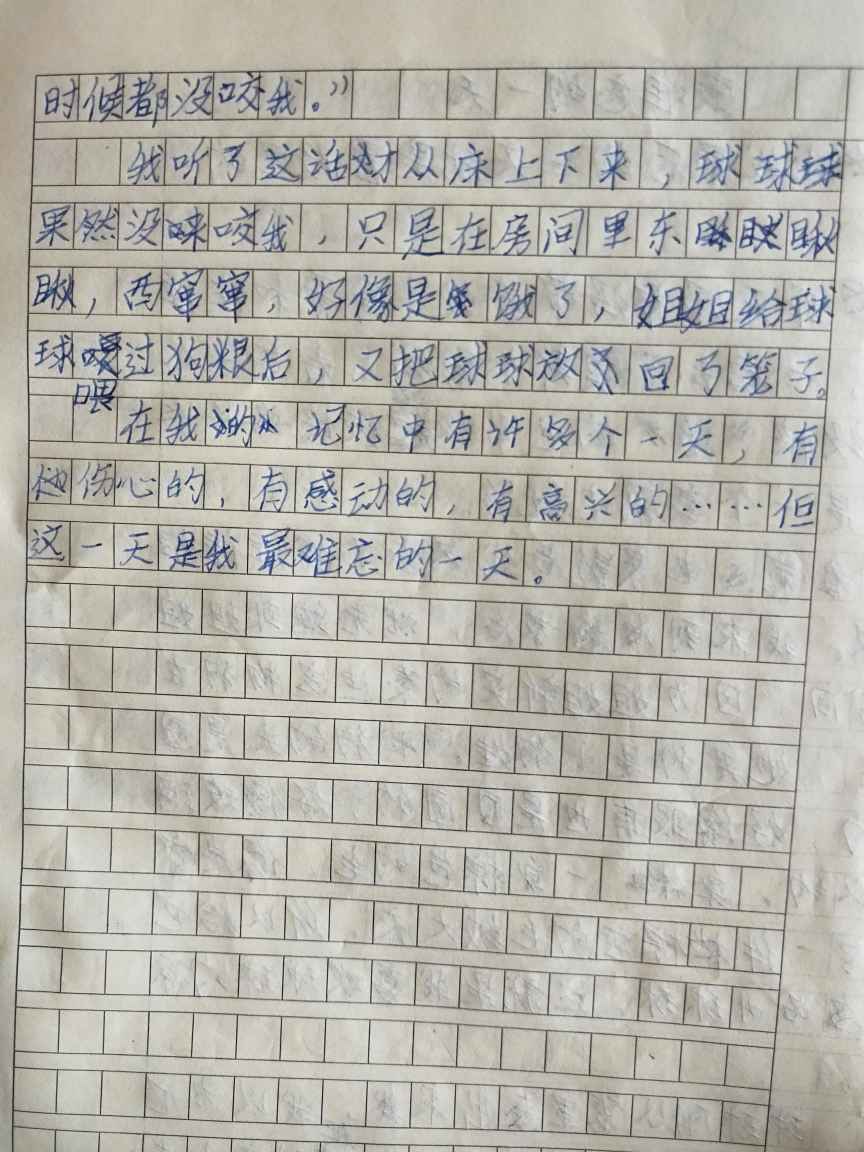 时候都没咬我。”
我听了这话才从床上下来，球球球
果然没咬我，只是在房间里东瞅
瞅，西窜窜，好像是饿了，姐姐给球
球喂过狗粮后，又把球球放回了笼子。
在我的记忆中有许多个一天，有
伤心的，有感动的，有高兴的……但
这一天是我最难忘的一天。